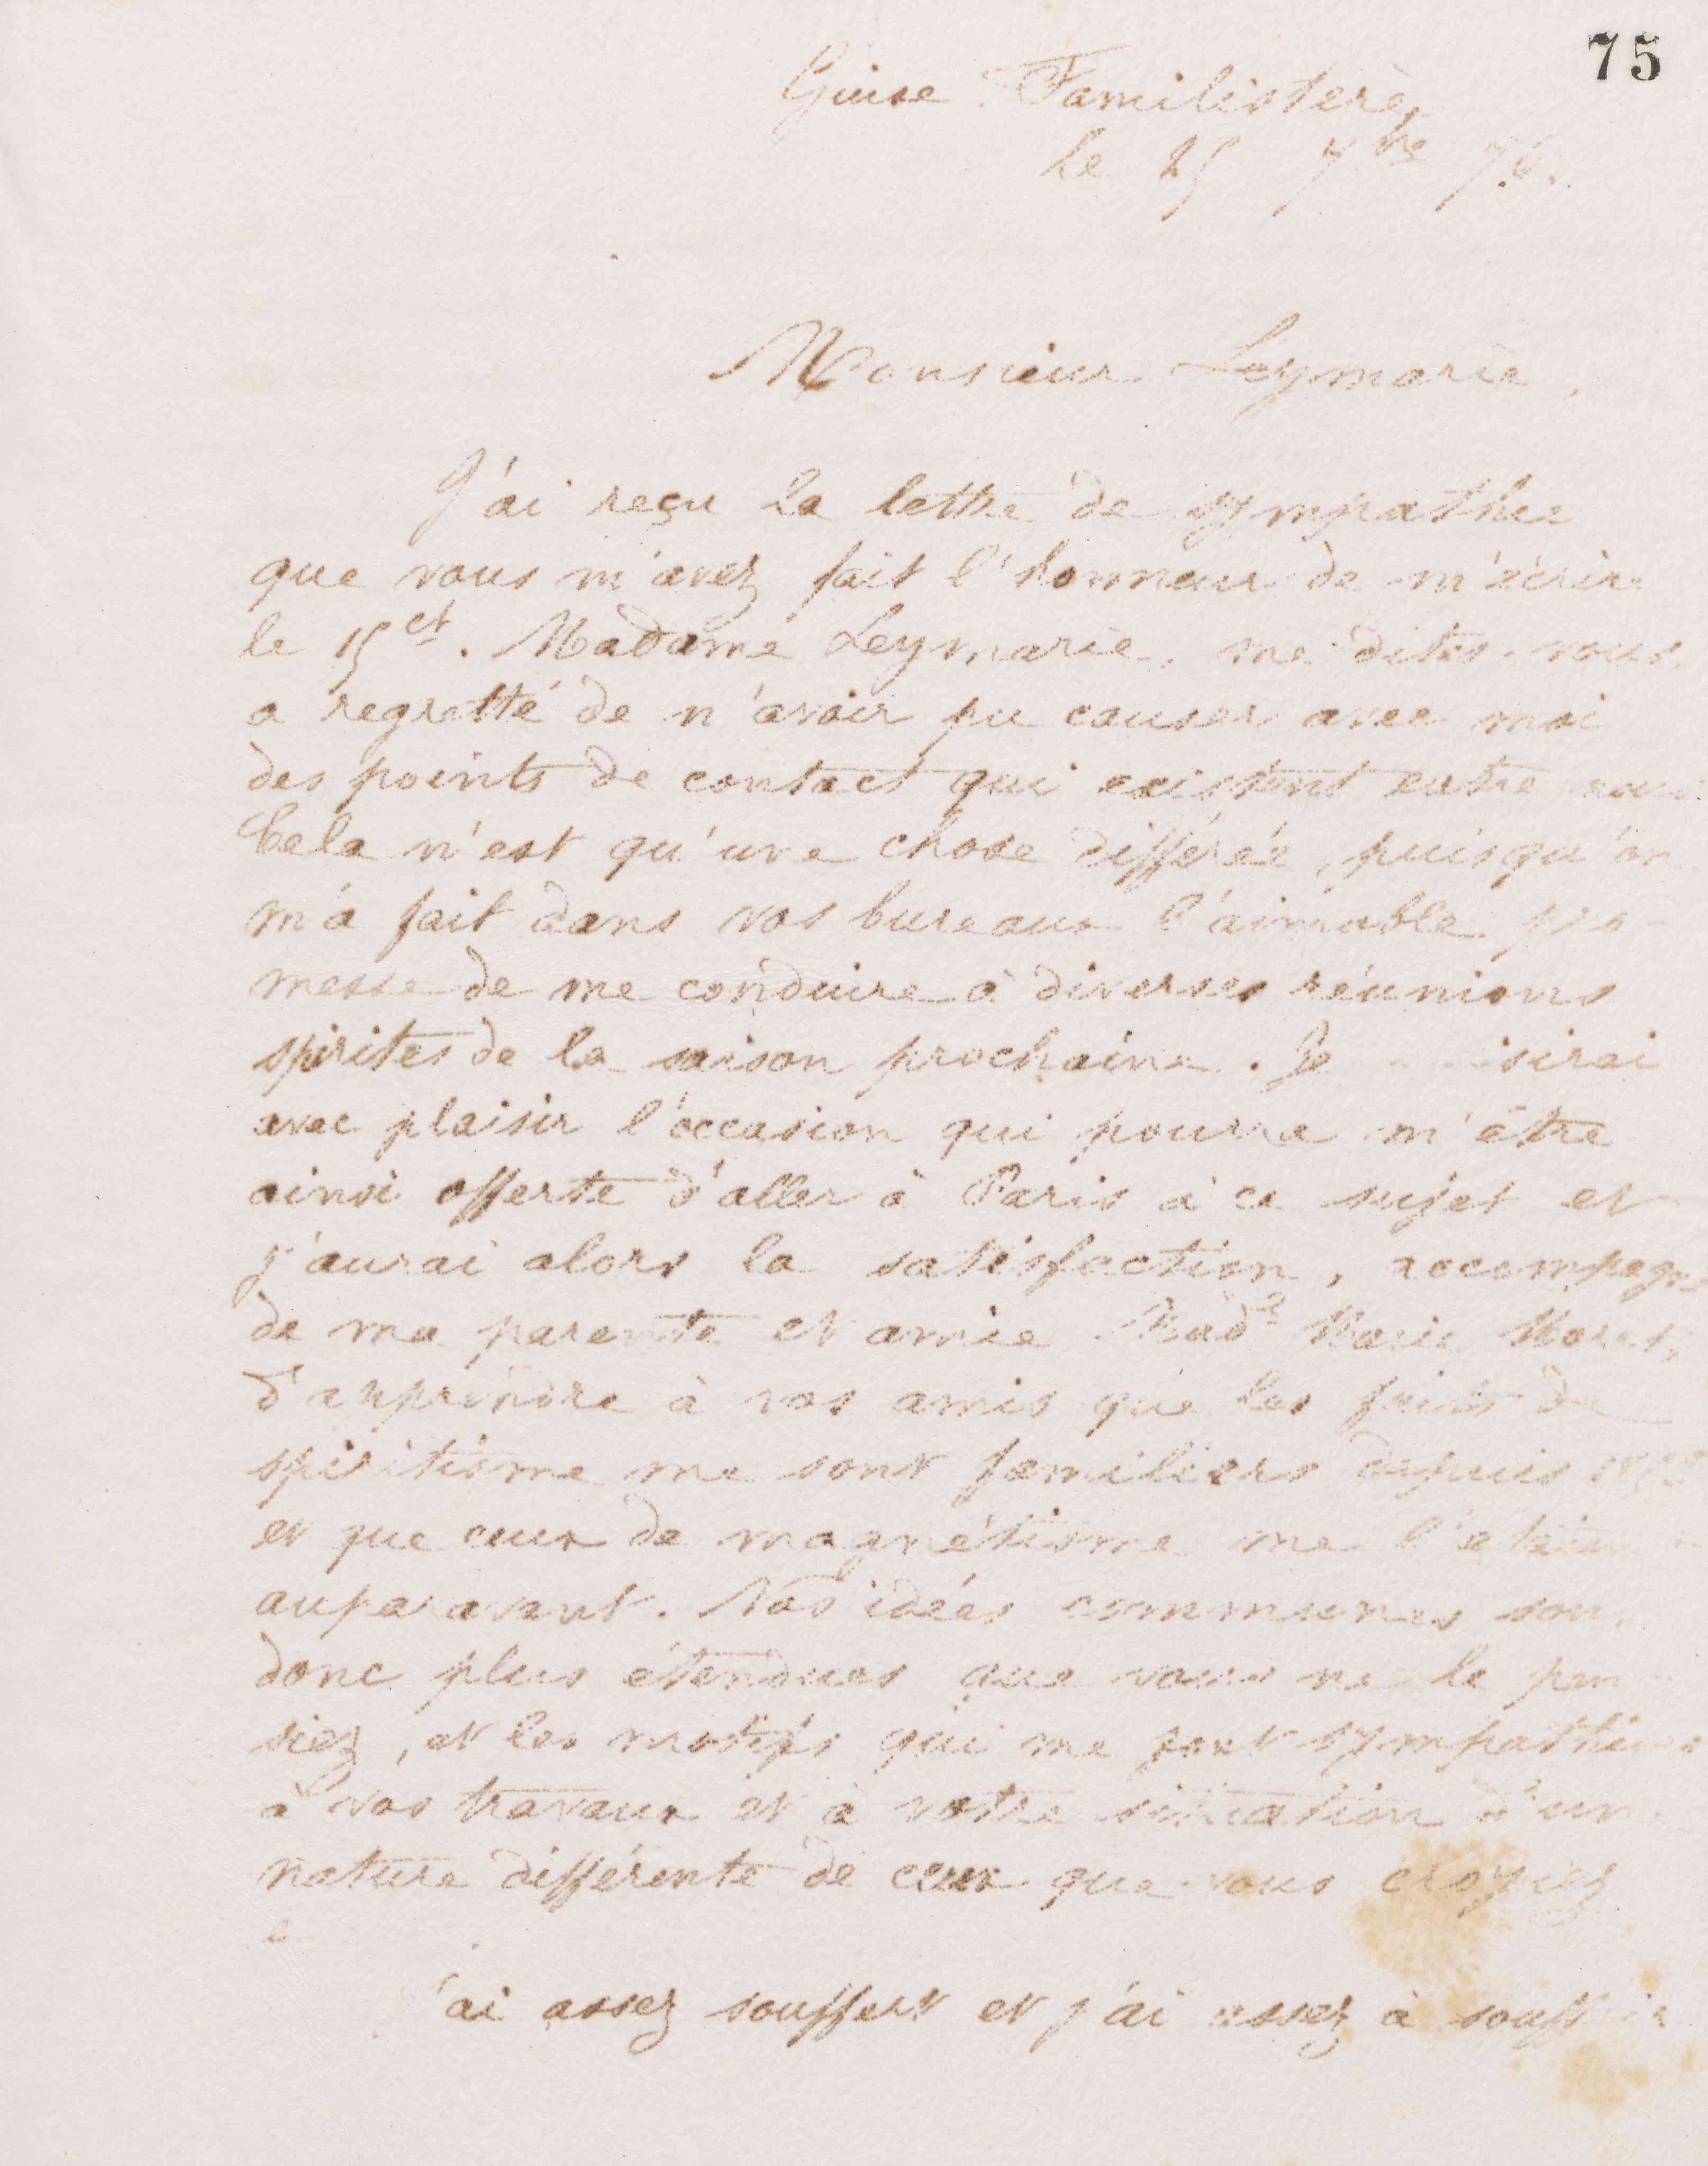 75
Guise Familistère,
le 25 7bre 76.
Monsieur Leymarie,
J'ai reçu la lettre de sympathie
que vous m'avez fait l'honneur de m'écrire
le 15 ct. Madame Leymarie, me dites-vous
a regretté de n'avoir pu causer avec moi
des points de contact qui existent entre nous
Cela n'est qu'une chose différée, puisqu'on
m'a fait dans vos bureaux l'aimable pro-
messe de me conduire à diverses réunions
spirites de la saison prochaine. Je saisirai
avec plaisir l'occasion qui pourra m'être
ainsi offerte d'aller à Paris à ce sujet et
j'aurai alors la satisfaction, accompagné
de ma parente et amie Made Marie Moret,
d'apprendre à vos amis que les faits du
spiritisme me sont familiers depuis
et que ceux de magnétisme me l'étaient
auparavant. Nos idées communes sont
donc plus étendues que vous ne le pen
siez, et les motifs qui me font sympathiser
à vos travaux et à votre situation d'une
nature différente de ceux que vous croyiez
'ai assez souffert et j'ai assez à souffrir